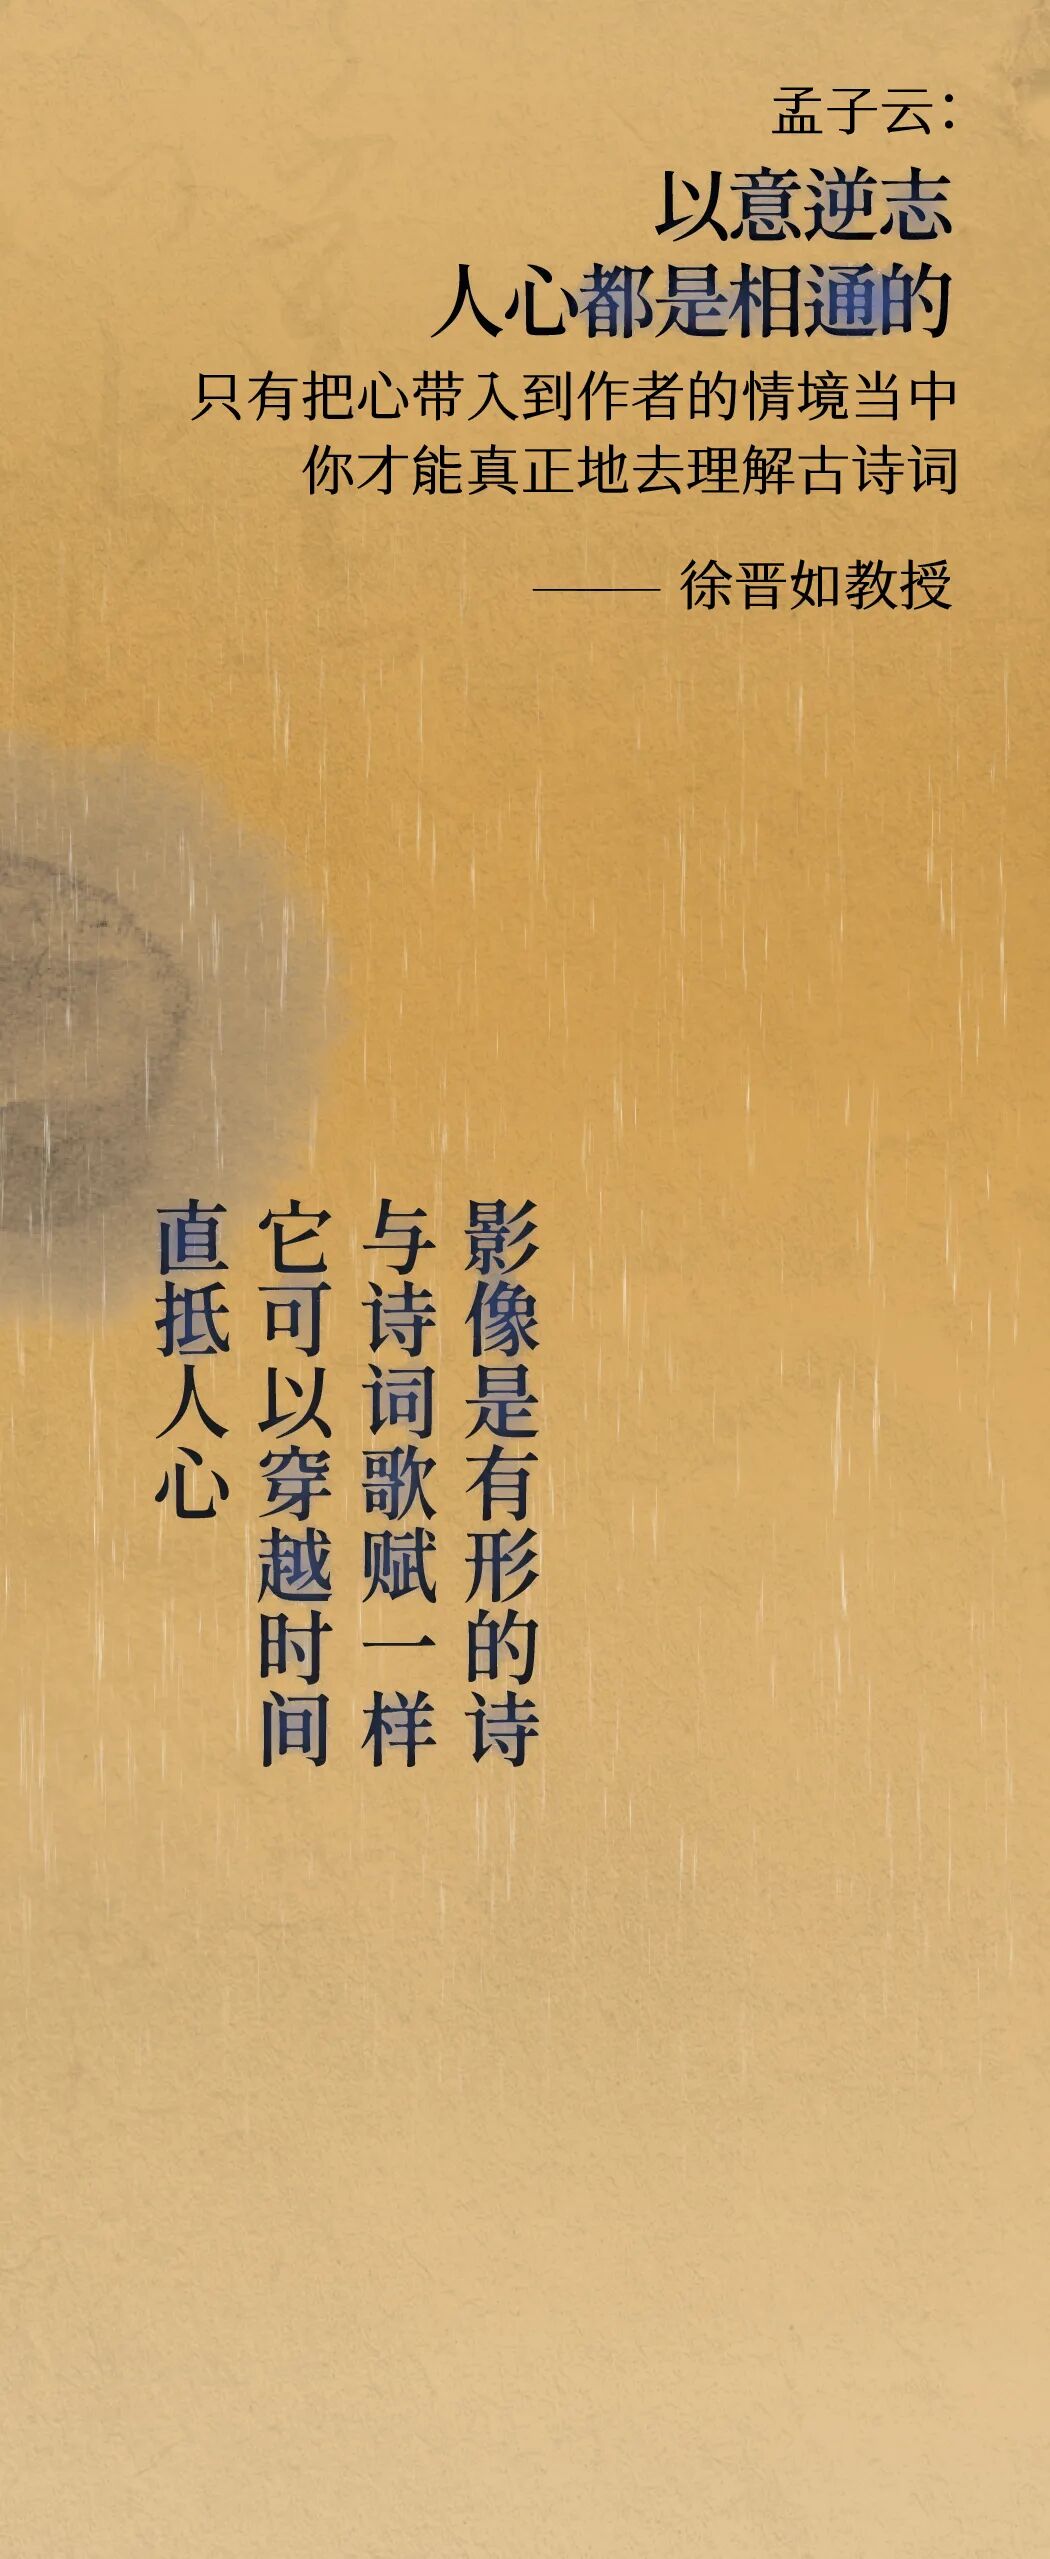 孟子云：
以意逆志
人心都是相通的
只有把心带入到作者的情境当中
你才能真正地去理解古诗词
—— 徐晋如教授
影像是有形的诗
与诗词歌赋一样
它可以穿越时间
直抵人心